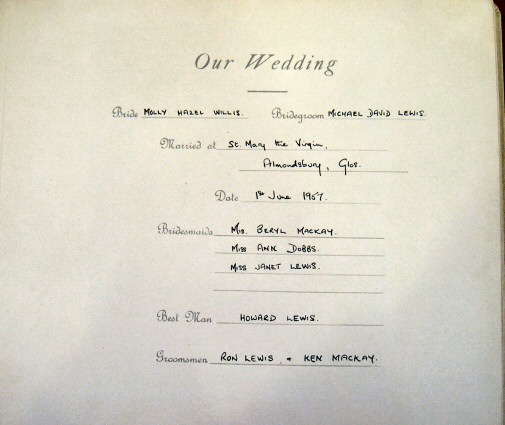 Our Wedding
Bride MOLLY HAZEL WILLIS. Bridegroom MICHAEL DAVID LEWIS.
Married at St. Mary the Virgin,
Almondsbury, Glos.
Date 1st June 1957.
Bridesmaids Mrs. BERYL MACKAY.
MISS ANN DOBBS.
MISS JANET LEWIS.
Best Man HOWARD LEWIS.
Groomsmen RON LEWIS & KEN MACKAY.